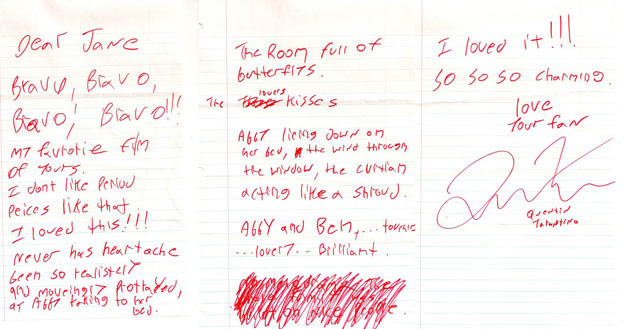 Dear Jane
Bravo, Bravo,
Bravo! Bravo!!!
MY favrotie film
of Yours.
I dont like Period
Peices like that.
I loved this!!!
Never has heartache
been so realisticly
and moveingly Protrayed,
as ABBY taking to her
bed.
The Room full of
butterflys.
The lovers kisses
ABBY lieing down on
her bed, the wind through
the window, the curtian
acting like a shroud.
ABBY and Ben,...
...lovely... Brilliant.
I loved it!!!
so so so charming.
love
Your fan
Quentin
Tarantino